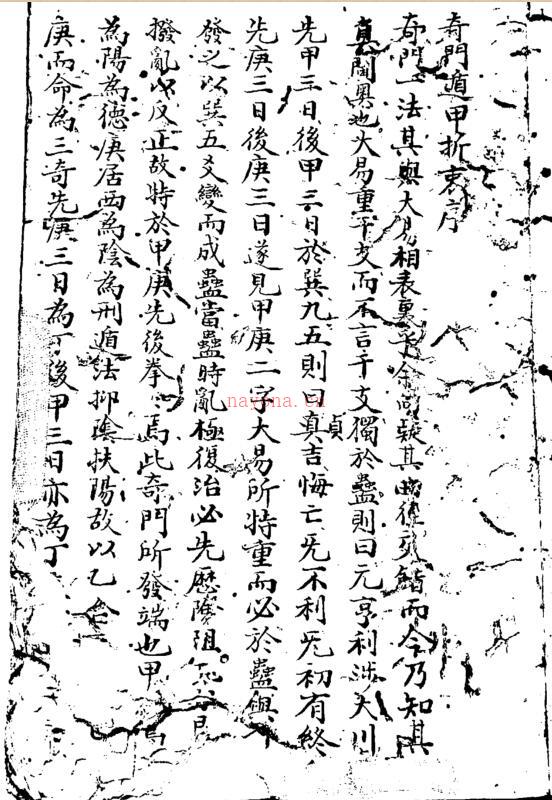 奇門遁甲折衷序
奇門一法其與大易相表裏乎余故疑其幽徑而今乃知其
真閫奧也大易重干支而不言干支獨於蠱則曰元亨利涉大川
先甲三日後甲三日於巽九五則曰真吉悔亡旡不利旡初有終
貞
先庚三日後庚三日遂見甲庚二字大易所特重而必於蠱與
發之以巽五爻變而成蠱當蠱時亂極復治必先歷險阻
撥亂以反正故特於甲庚先後拳焉此奇門所發端也甲
為陽為德庚居西為陰為刑遁法抑陰扶陽故以乙合
庚而命為三奇先庚三日為丁後甲三日亦為丁
nayona.cn